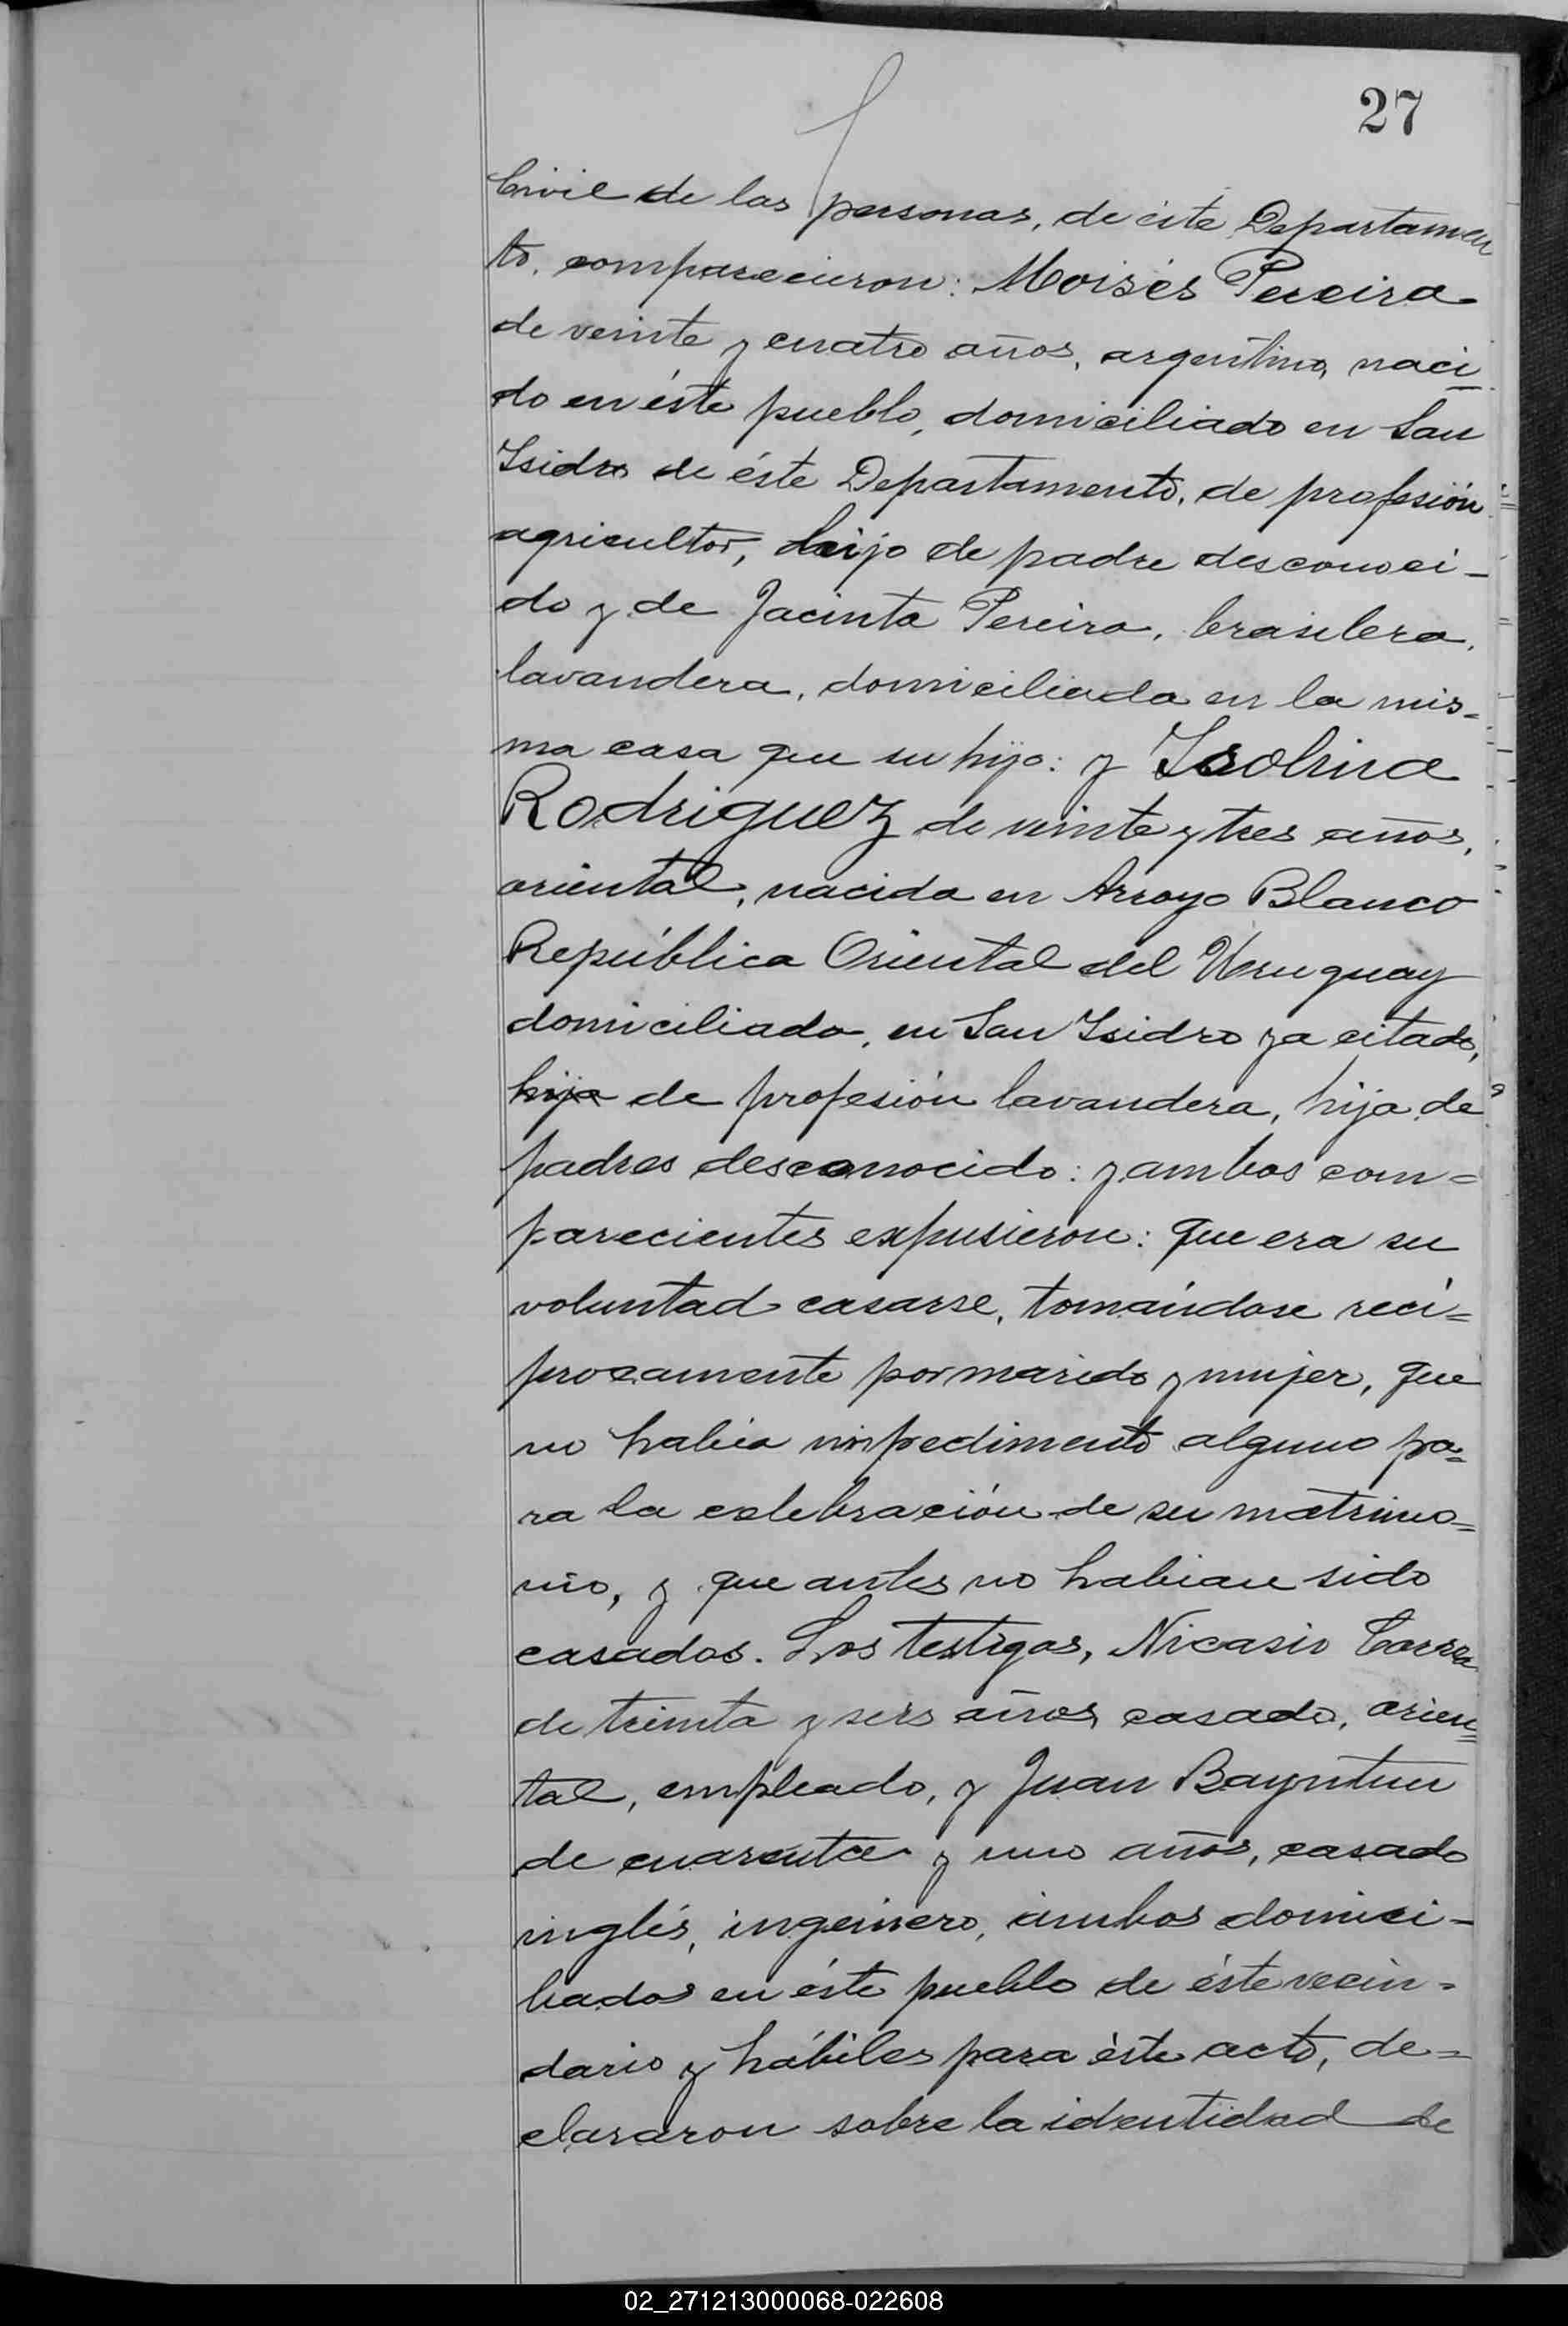 27
Civil de las personas, de éste Departamen
to, comparecieron: Moisés Pereira
de veinte y cuatro años, argentino, naci
do en éste pueblo, domiciliado en San
Isidro de éste Departamento, de profesión
agricultor, hijo de padre desconoci-
do y de Jacinta Pereira, brasilera,
lavandera, domiciliada en la mis=
ma casa que su hijo: y Isolina
Rodriguez de veinte y tres años,
oriental, nacida en Arroyo Blanco
República Oriental del Uruguay
domiciliada, en San Isidro ya citado,
hija de profesión lavandera, hija de
padres desconocido: y ambos com=
parecientes expusieron: que era su
voluntad casarse, tomándose recí=
procamente por marido y mujer, que
no había impedimento alguno pa=
ra la celebración de su matrimo=
nio, y que antes no habian sido
casados. Los testigos, Nicasio Correa
de treinta y seis años, casado, orien=
tal, empleado, y Juan Bayntun
de cuarenta y uno años, casado
inglés, ingeniero, ambos domici-
liados en éste pueblo de éste vecin=
dario y hábiles para éste acto, de=
clararon sobre la identidad de
02_271213000068-022608